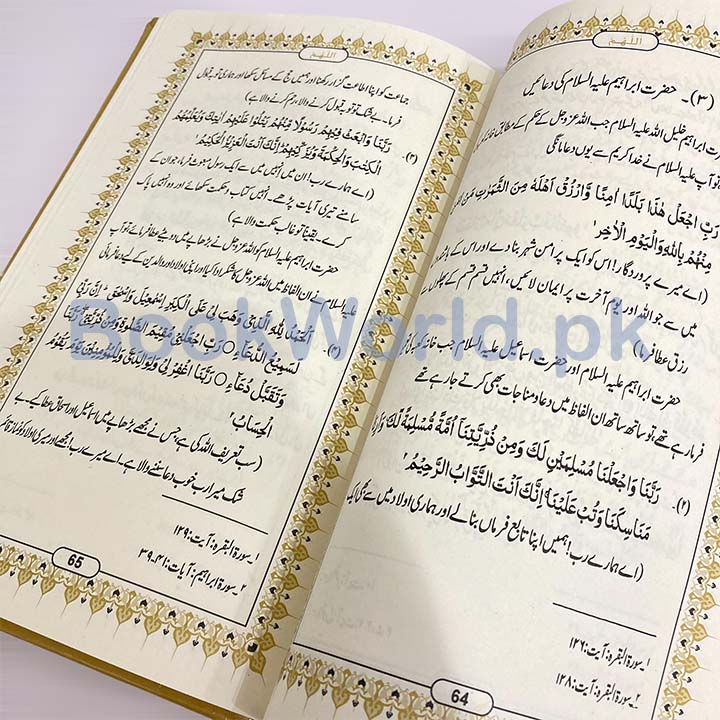 اللّٰهم
(۳)۔ حضرت ابراہیم علیہ السلام کی دعائیں
ابراہیم خلیل اللہ علیہ السلام جب اللہ عزوجل کے حکم کے مطابق
تو آپ علیہ السلام نے خدا کریم سے یوں دعا مانگی
رَبِّ اجْعَلْ هٰذَا بَلَدًا اٰمِنًا وَّارْزُقْ اَهْلَهٗ مِنَ الثَّمَرٰتِ مَنْ
مِنْهُمْ بِاللّٰهِ وَالْيَوْمِ الْاٰخِرِ ۱
(اے میرے پروردگار! اس کو ایک پر امن شہر بنا دے اور اس کے
میں سے جو اللہ اور یوم آخرت پر ایمان لائیں، انہیں قسم قسم کے پھلوں سے
رزق عطا فرما)
حضرت ابراہیم علیہ السلام اور حضرت اسماعیل علیہ السلام جب خانہ کعبہ
فرما رہے تھے، تو ساتھ ساتھ ان الفاظ میں دعا و مناجات بھی کرتے جا رہے تھے
(۲)۔ رَبَّنَا وَاجْعَلْنَا مُسْلِمَيْنِ لَكَ وَمِنْ ذُرِّيَّتِنَآ اُمَّةً مُّسْلِمَةً لَّكَ وَاَرِنَا
مَنَاسِكَنَا وَتُبْ عَلَيْنَا اِنَّكَ اَنْتَ التَّوَّابُ الرَّحِيْمُ ۲
(اے ہمارے رب! ہمیں اپنا تابع فرماں بنالے اور ہماری اولاد میں سے بھی ایک
۱۔ سورۃ البقرہ: آیت: ۱۲۶
۲۔ سورۃ البقرہ: آیت: ۱۲۸
64
اللّٰهم
جماعت کو اپنا اطاعت گزار رکھنا اور ہمیں حج کے مسائل سکھا اور ہماری توبہ قبول
فرما۔ بے شک تو توبہ قبول کرنے والا، رحم کرنے والا ہے)
(۳)۔ رَبَّنَا وَابْعَثْ فِيْهِمْ رَسُوْلًا مِّنْهُمْ يَتْلُوْا عَلَيْهِمْ اٰيٰتِكَ وَيُعَلِّمُهُمُ
الْكِتٰبَ وَالْحِكْمَةَ وَيُزَكِّيْهِمْ اِنَّكَ اَنْتَ الْعَزِيْزُ الْحَكِيْمُ ۱
(اے ہمارے رب! ان میں انہیں میں سے ایک رسول مبعوث فرما، جو ان کے
سامنے تیری آیات پڑھے۔ انہیں کتاب و حکمت سکھائے اور وہ انہیں پاک
کرے۔ یقیناً تو غالب حکمت والا ہے)
حضرت ابراہیم علیہ السلام کو اللہ عزوجل نے بڑھاپے میں دو بیٹے عطا فرمائے تو آپ
علیہ السلام نے ان الفاظ میں اللہ عزوجل کا شکر ادا کیا اور اپنی اولاد اور والدین کے لیے دعا فرمائی
(۴)۔ اَلْحَمْدُ لِلّٰهِ الَّذِيْ وَهَبَ لِيْ عَلَى الْكِبَرِ اِسْمٰعِيْلَ وَاِسْحٰقَ ۚ اِنَّ رَبِّيْ
لَسَمِيْعُ الدُّعَآءِ ○ رَبِّ اجْعَلْنِيْ مُقِيْمَ الصَّلٰوةِ وَمِنْ ذُرِّيَّتِيْ رَبَّنَا
وَتَقَبَّلْ دُعَآءِ ○ رَبَّنَا اغْفِرْ لِيْ وَلِوَالِدَيَّ وَلِلْمُؤْمِنِيْنَ يَوْمَ يَقُوْمُ
الْحِسَابُ ۲
(سب تعریف اللہ کی ہے، جس نے مجھے بڑھاپے میں اسماعیل اور اسحاق عطا کیے بے
شک میرا رب خوب دعا سننے والا ہے۔ اے میرے رب! مجھے اور میری اولاد کو نماز قائم
۱۔ سورۃ البقرہ: آیت: ۱۲۹
۲۔ سورۃ ابراہیم: آیات: ۴۱۔۳۹
65
BookWorld.pk